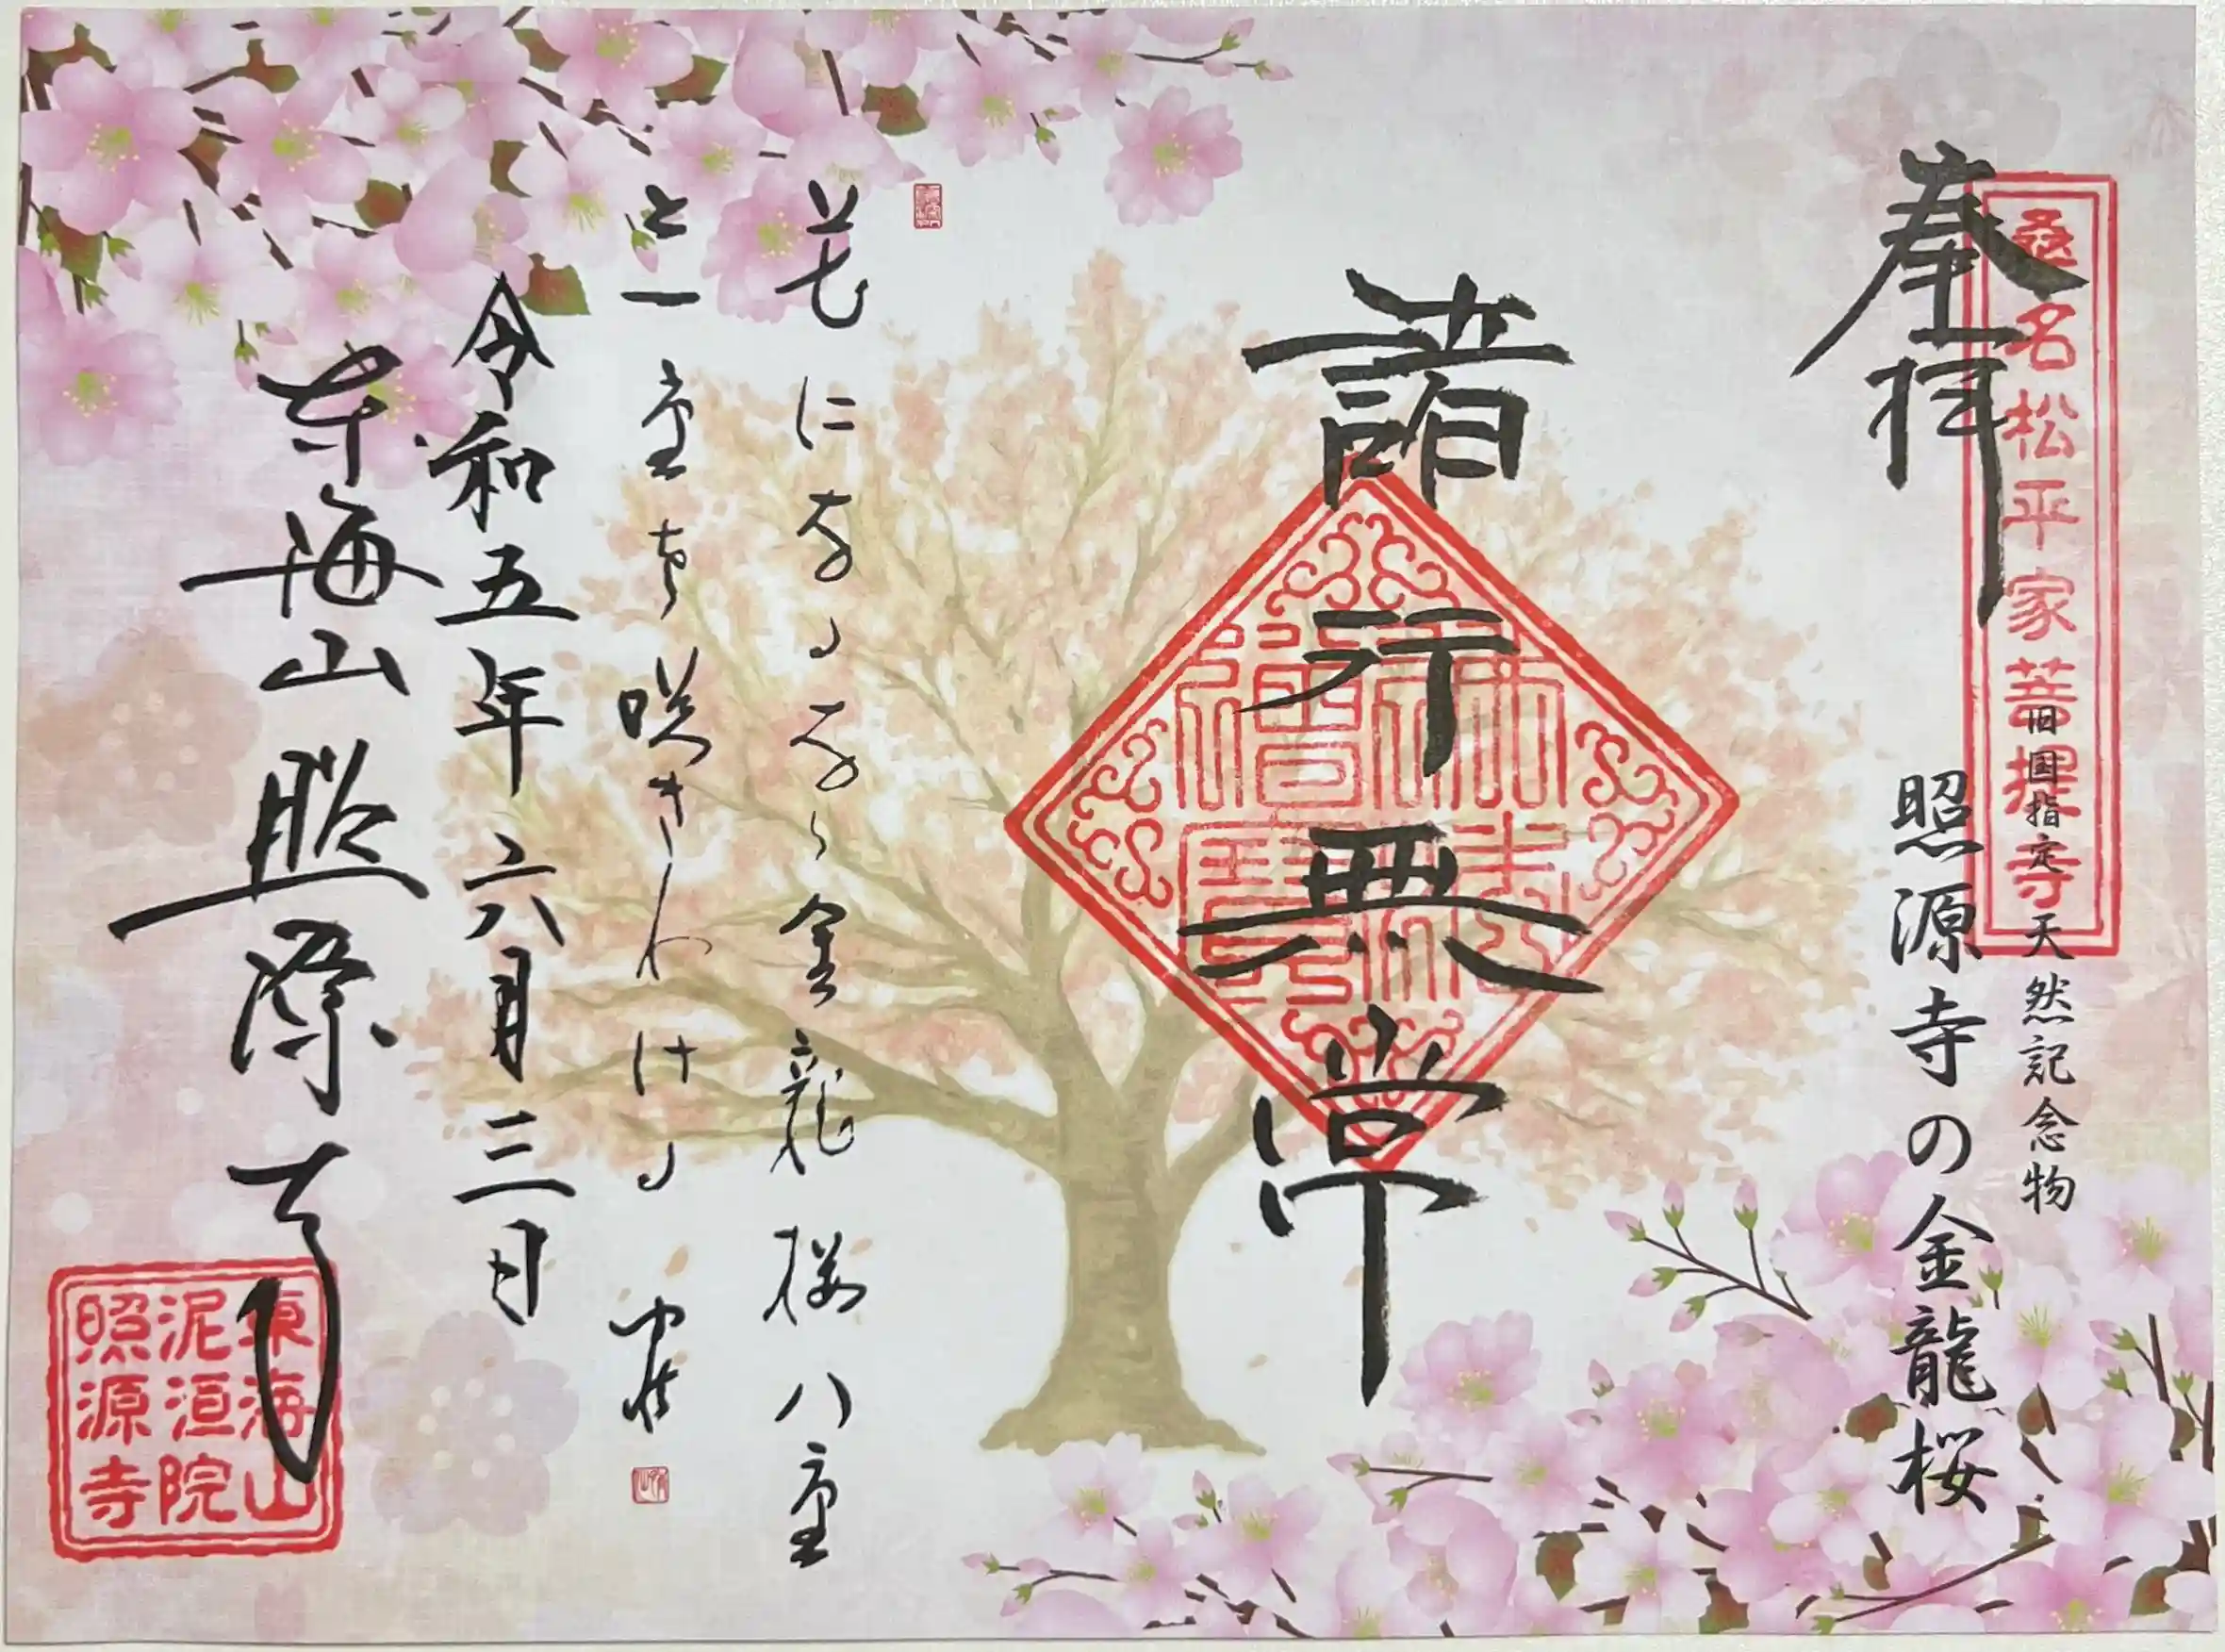 桑名松平家菩提寺
奉拝
旧国指定天然記念物
照源寺の金龍桜
諸行無常
佛法僧寶
花になるなら金龍桜八重
と一重を咲きわける
令和五年六月三日
東海山照源寺
東海山
泥洹院
照源寺